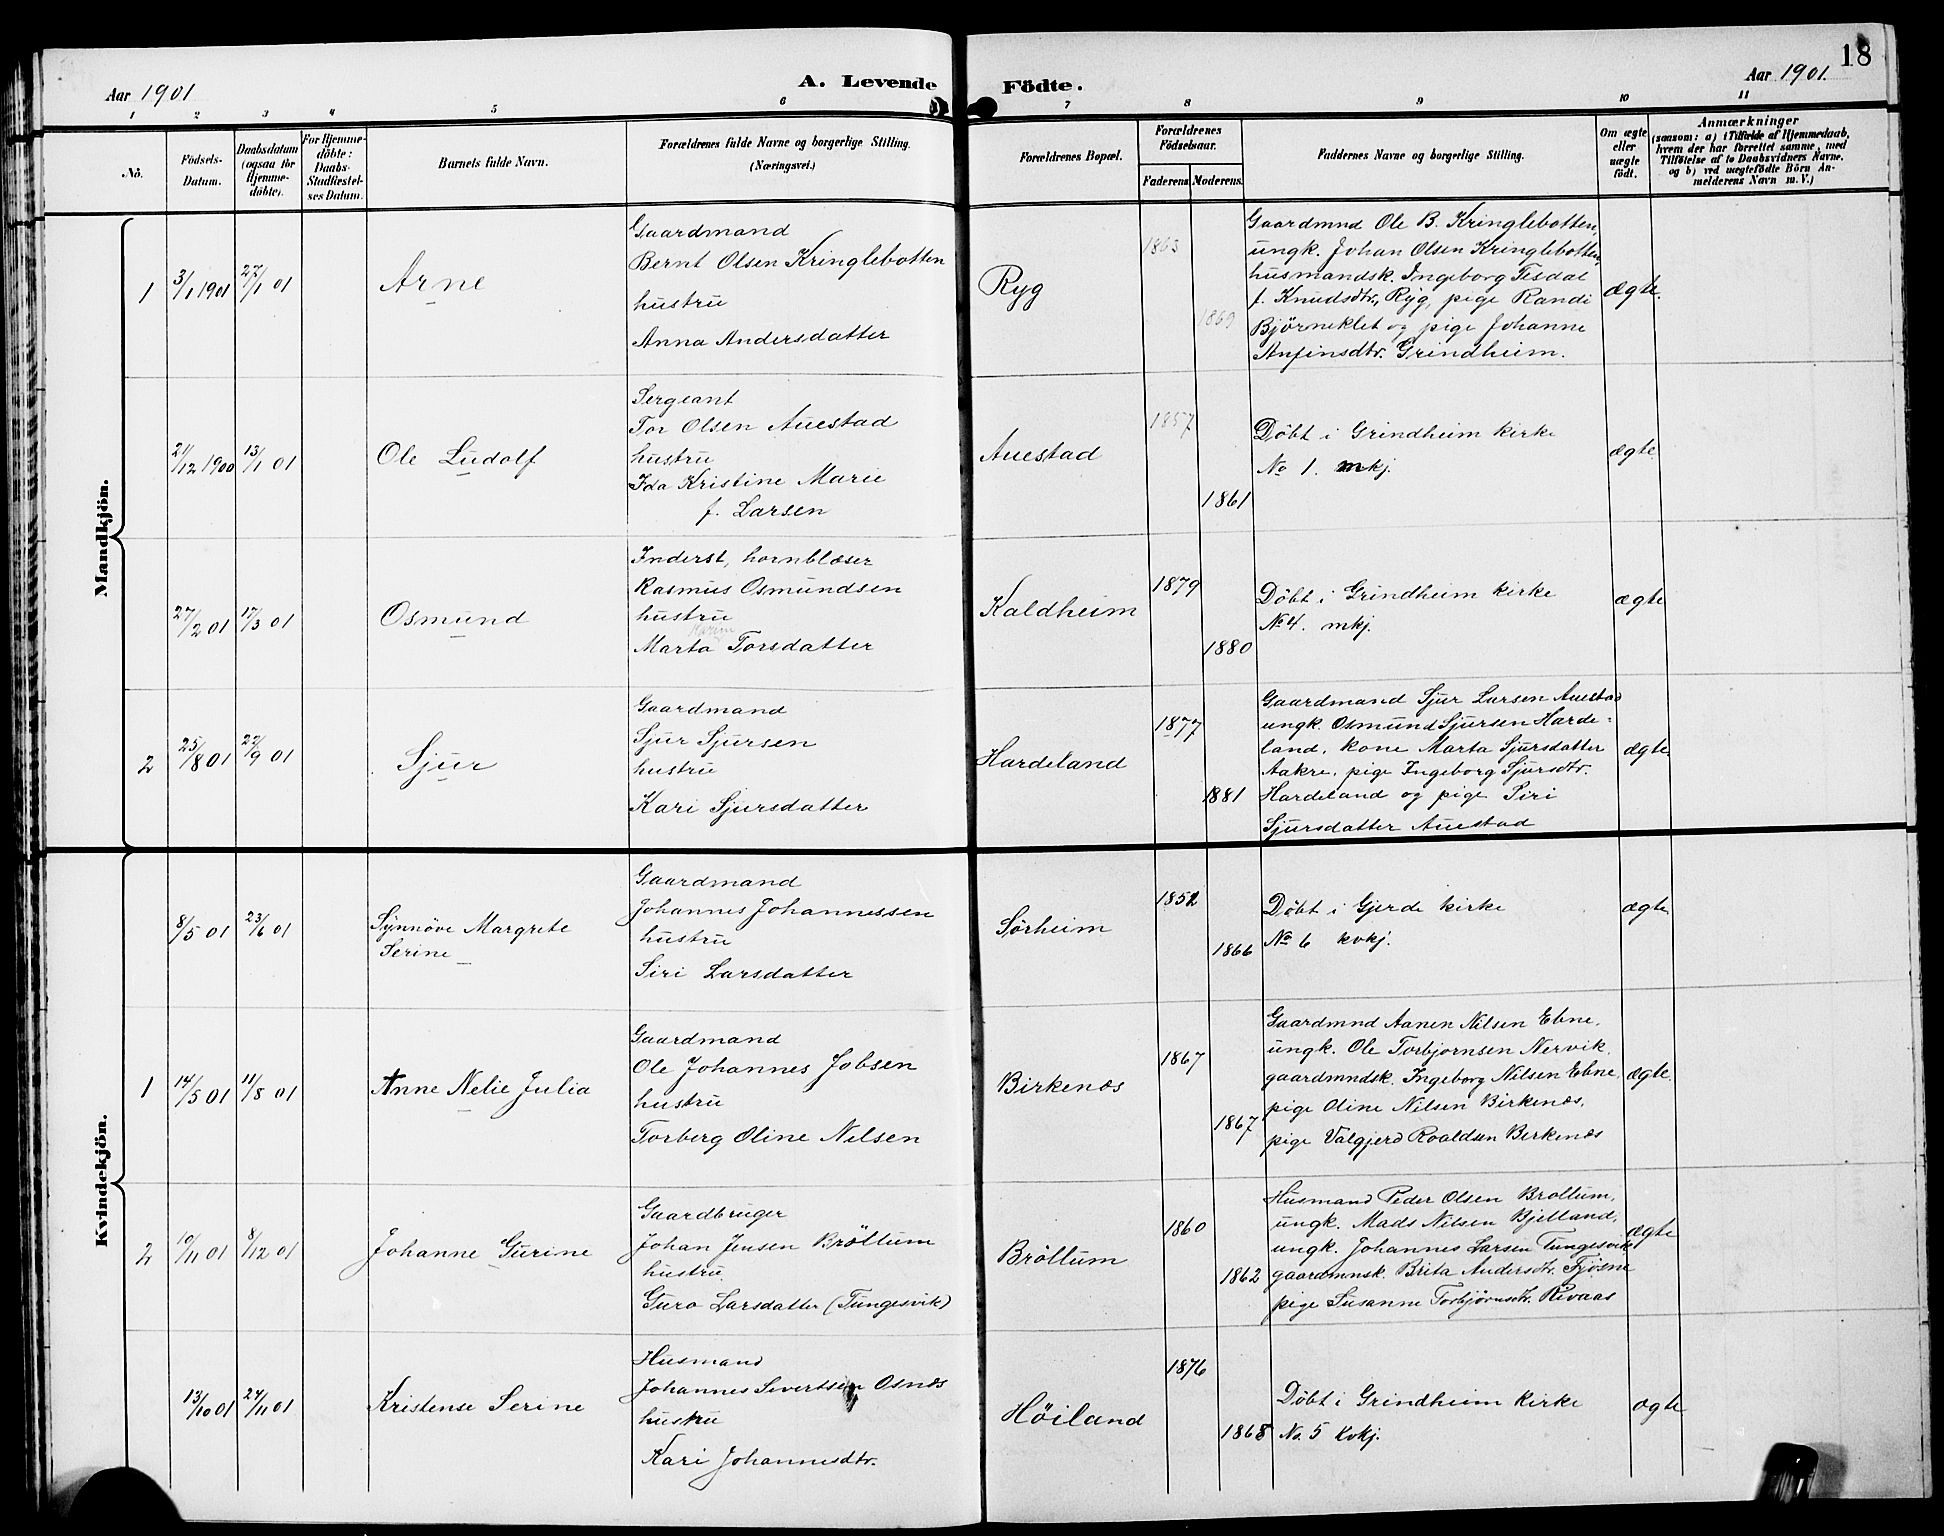 18
Aar 1901
A. Levende Födte.
Aar 1901.
1 2 3 4 5 6 7 8 9 10 11
Nö.
Födsels-
Datum.
Daabsdatum
(ogsaa for
Hjemme-
döbte).
For Hjemme-
döbte:
Daabs-
Stadfæstel-
ses Datum.
Barnets fulde Navn.
Forældrenes fulde Navne og borgerlige Stilling.
(Næringsvei.)
Forældrenes Bopæl.
Forældrenes
Födselsaar.
Faderens Moderens.
Faddernes Navne og borgerlige Stilling.
Om ægte
eller
uægte
födt.
Anmærkninger
(saasom: a) i Tilfælde af Hjemmedaab,
hvem der har forrettet samme, med
Tilföielse af to Daabsvidners Navne.
og b) ved uægtefödte Börn An-
melderens Navn m. V.)
Mandkjön.
1
3/1 1901
27/1 01
Arne
Gaardmand
Bernt Olsen Kringlebotten
hustru
Anna Andersdatter
Ryg
1863
1869
Gaardmnd Ole B. Kringlebotten,
ungk. Johan Olsen Kringlebotten,
husmandsk. Ingeborg Tesdal
f. Knudsdtr., Ryg, pige Randi
Björneklet og pige Johanne
Anfinsdtr. Grindheim.
ægte.
21/12 1900
13/1 01
Ole Ludolf
Sergeant
Tor Olsen Auestad
hustru
Ida Kristine Marie
f. Larsen
Auestad
1857
1861
Döbt i Grindheim kirke
No 1. mkj.
ægte.
27/2 01
17/3 01
Osmund
Inderst, hornblæser
Rasmus Osmundsen
hustru
Marta Torsdatter
Kaldheim
1879
1880
Döbt i Grindheim kirke
No 4. mkj.
ægte
2
25/8 01
22/9 01
Sjur
Gaardmand
Sjur Sjursen
hustru
Kari Sjursdatter
Hardeland
1877
1881
Gaardmand Sjur Larsen Auestad
ungk. Osmund Sjursen Harde-
land, kone Marta Sjursdatter
Aakre, pige Ingeborg Sjursdtr.
Hardeland og pige Siri
Sjursdatter Auestad
ægte
Kvindekjön.
8/5 01
23/6 01
Synnöve Margrete
Serine
Gaardmand
Johannes Johannessen
hustru
Siri Larsdatter
Sörheim
1852
1866
Döbt i Gjerde kirke
No 6 kvkj.
ægte
1
14/5 01
11/8 01
Anne Nelie Julia
Gaardmand
Ole Johannes Jobsen
hustru
Torberg Oline Nilsen
Birkenæs
1867
1867
Gaardmnd Aanen Nilsen Ebne,
ungk. Ole Torbjornsen Nervik,
gaardmndsk. Ingeborg Nilsen Ebne,
pige Oline Nilsen Birkenæs,
pige Valgjerd Roaldsen Birkenæs
ægte.
2
10/11 01
8/12 01
Johanne Gurine
Gaardbruger
Johan Jensen Bröllum
hustru
Guro Larsdatter (Tungesvik)
Bröllum
1860
1862
Husmand Peder Olsen Brollum,
ungk. Mads Nilsen Bjelland,
ungk. Johannes Larsen Tungesvik
gaardmnsk. Brita Andersdtr. Fjösne
pige Susanne Torbjörnsdtr. Revaas
ægte
13/10 01
24/11 01
Kristense Serine
Husmand
Johannes Sivertsen Osnæs
hustru
Kari Johannesdtr.
Höiland
1876
1868
Döbt i Grindheim kirke
No. 5 kvkj.
ægte